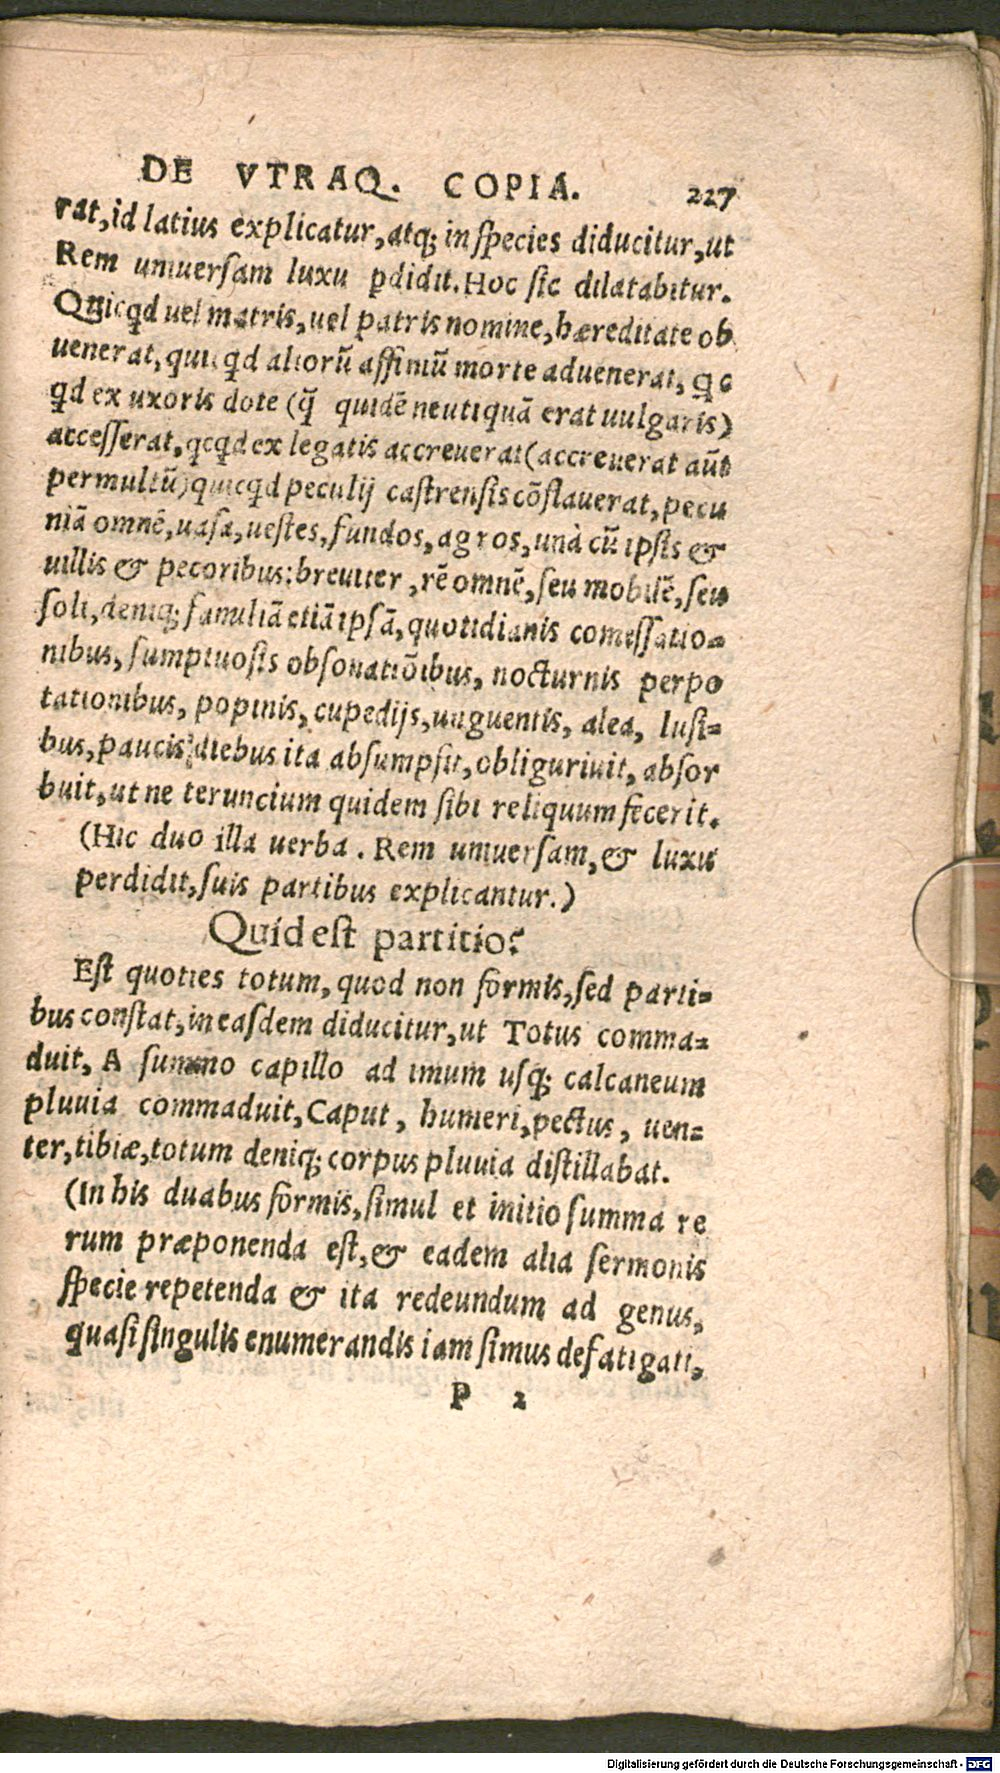 DE VTRAQ. COPIA. 227
rat, id latius explicatur, atq; in species diducitur, ut
Rem uniuersam luxu ꝑdidit. Hoc sic dilatabitur.
Quicqd uel matris, uel patris nomine, hæreditate ob
uenerat, quicqd aliorũ affiniũ morte aduenerat, qc
qd ex uxoris dote (q̃ quidẽ neutiquã erat uulgaris)
accesserat, qcqd ex legatis accreuerat (accreuerat aũt
permultũ) quicqd peculij castrensis cõflauerat, pecu
niã omnẽ, uasa, uestes, fundos, agros, unà cũ ipsis &
uillis & pecoribus: breuiter, rẽ omnẽ, seu mobilẽ, seu
soli, deniq; familiã etiã ipsã, quotidianis comessatio=
nibus, sumptuosis obsonatiõibus, nocturnis perpo
tationibus, popinis, cupedijs, unguentis, alea, lusi=
bus, paucis diebus ita absumpsit, obliguriuit, absor
buit, ut ne teruncium quidem sibi reliquum fecerit.
(Hic duo illa uerba. Rem uniuersam, & luxu
perdidit, suis partibus explicantur.)
Quid est partitio?
Est quoties totum, quod non formis, sed parti=
bus constat, in easdem diducitur, ut Totus comma=
duit, A summo capillo ad imum usq; calcaneum
pluuia commaduit, Caput, humeri, pectus, uen=
ter, tibiæ, totum deniq; corpus pluuia distillabat.
(In his duabus formis, simul et initio summa re
rum præponenda est, & eadem alia sermonis
specie repetenda & ita redeundum ad genus,
quasi singulis enumerandis iam simus defatigati,
P 2
Digitalisierung gefördert durch die Deutsche Forschungsgemeinschaft - DFG